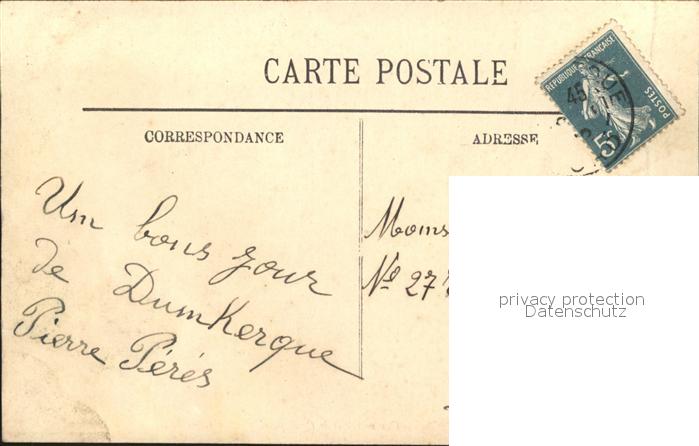 CARTE POSTALE
CORRESPONDANCE
ADRESSE
REPUBLIQUE FRANÇAISE
POSTES
5
45
Um bons zour
de Dumkerque
Pierre Pérés
Moms
Nº 27
privacy protection
Datenschutz